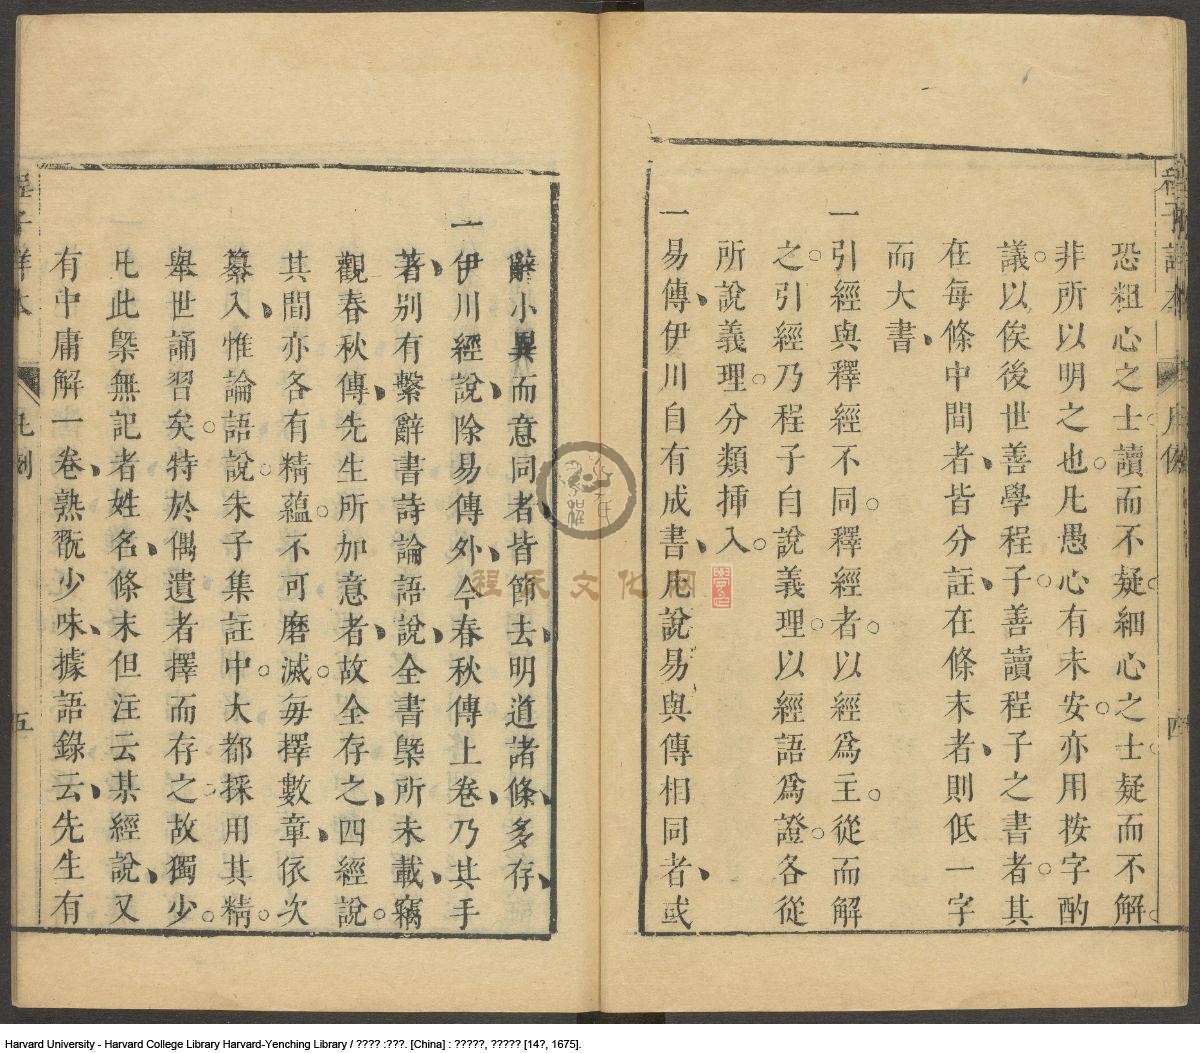 恐粗心之士讀而不疑細心之士疑而不解
非所以明之也凡愚心有未安亦用按字酌
議以俟後世善學程子善讀程子之書者其
在每條中間者皆分註在條末者則低一字
而大書
一引經與釋經不同釋經者以經爲主從而解
之引經乃程子自說義理以經語爲證各從
所說義理分類揷入
一易傳伊川自有成書凡說易與傳相同者或
辭小異而意同者皆節去明道諸條多存
一伊川經說除易傳外今春秋傳上卷乃其手
著别有繫辭書詩論語說全書槩所未載竊
觀春秋傳先生所加意者故全存之四經說
其間亦各有精蘊不可磨滅每擇數章依次
纂入惟論語說朱子集註中大都採用其精
舉世誦習矣特於偶遺者擇而存之故獨少
一凡此槩無記者姓名條末但注云某經說又
有中庸解一卷熟翫少味據語錄云先生有
程子詳本
凡例
五
程氏文化网
Harvard University - Harvard College Library Harvard-Yenching Library / ???? :???. [China] : ?????, ????? [14?, 1675].